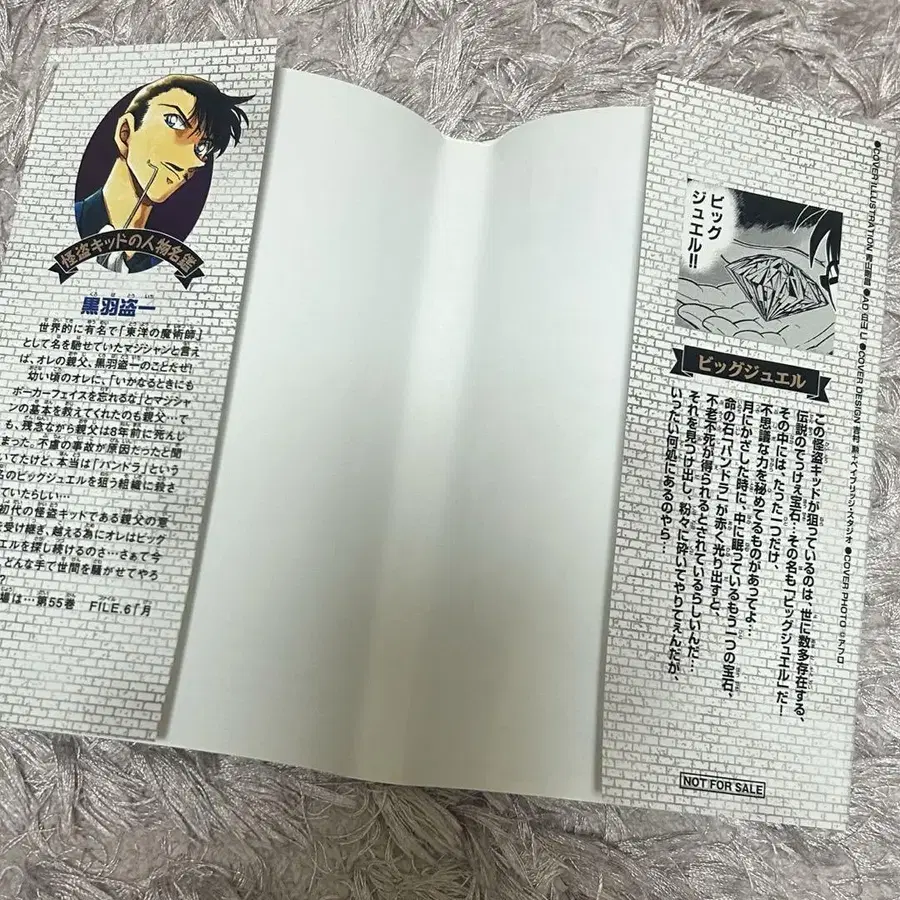 怪盗キッドの人物名鑑
黒羽盗一
世界的に有名で「東洋の魔術師」
として名を馳せていたマジシャンと言え
ば、オレの親父、黒羽盗一のことだぜ!
幼い頃のオレに、「いかなるときにも
ポーカーフェイスを忘れるな」とマジシャ
ンの基本を教えてくれたのも親父…で
も、残念ながら親父は8年前に死んじ
まった。不慮の事故が原因だったと聞
いてたけど、本当は「パンドラ」という
名のビッグジュエルを狙う組織に殺さ
ていたらしい…
初代の怪盗キッドである親父の意
を受け継ぎ、越える為にオレはビッグ
エルを探し続けるのさ…さぁて今
どんな手で世間を騒がせてやろ
?
場は…第55巻 FILE.6「月
ビッグ
ジュエル!!
ビッグジュエル
この怪盗キッドが狙っているのは、世に数多存在する、
伝説のでっけえ宝石…その名も「ビッグジュエル」だ!
その中には、たった一つだけ、
不思議な力を秘めてるものがあってよ…
月にかざした時に、中に眠っているもう一つの宝石、
命の石「パンドラ」が赤く光り出すと、
不老不死が得られるとされているらしいんだ…
それを見つけ出し、粉々に砕いてやりてえんだが、
いったい何処にあるのやら…
●COVER ILLUSTRATION/青山剛昌 ●AD ●COVER DESIGN ベイブリッジ・スタジオ ●COVER PHOTO ©アフロ
NOT FOR SALE